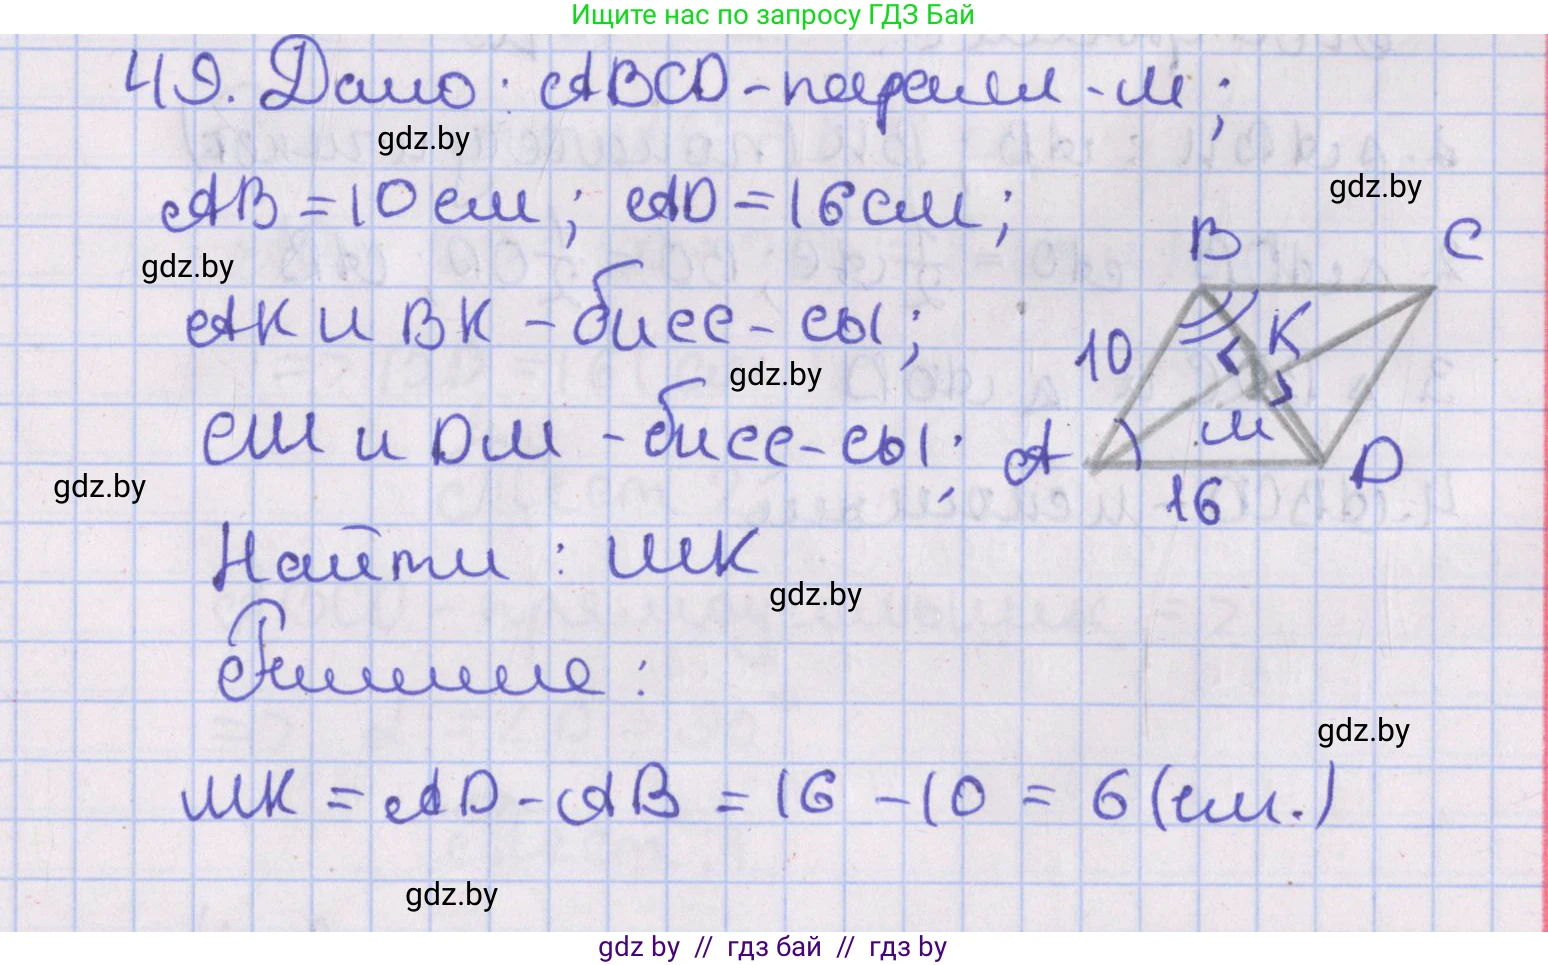 Ищите нас по запросу ГДЗ Бай
49. Дано: ABCD - паралл-м;
gdz.by
gdz.by
AB = 10 см; AD = 16 см;
gdz.by
B C
AK и BK - бисс-сы;
10 K
gdz.by
CM и DM - бисс-сы;
A M D
gdz.by
16
Найти: MK
gdz.by
Решение:
gdz.by
MK = AD - AB = 16 - 10 = 6 (см.)
gdz.by
gdz by // гдз бай // гдз by